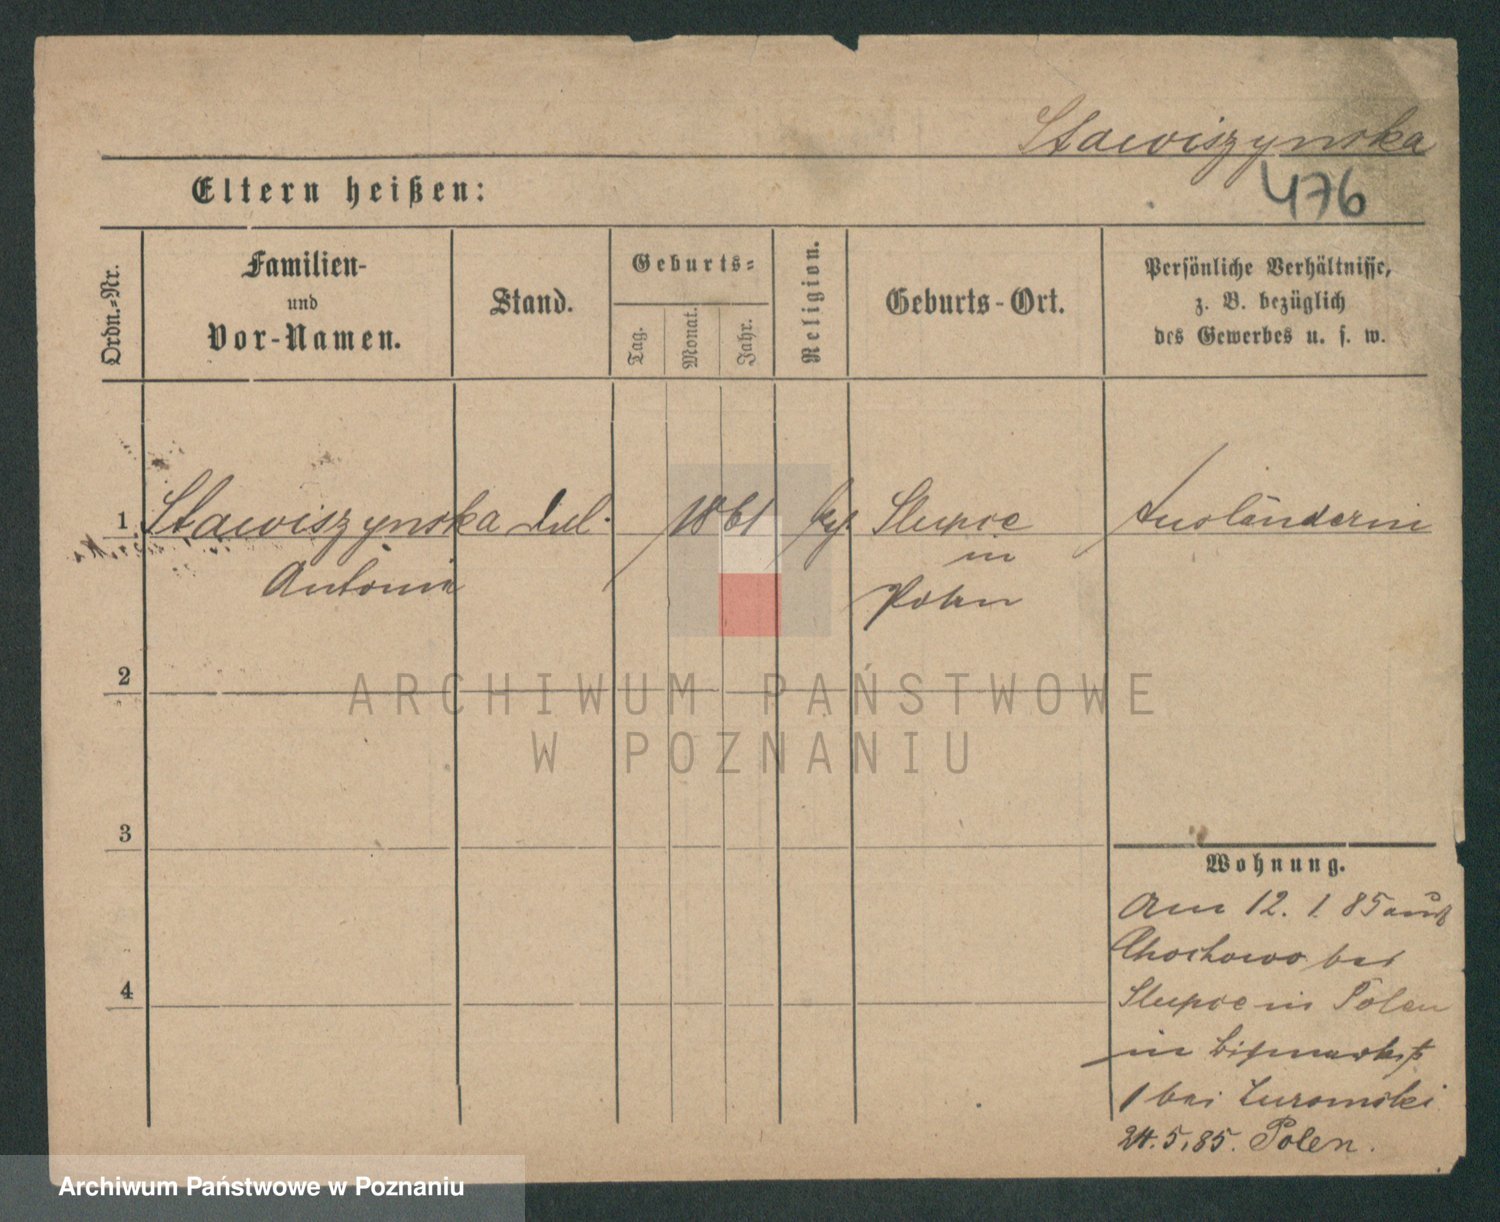 Stawiszynska
Eltern heißen:
476
Ordn.-Nr.
Familien-
und
Vor-Namen.
Stand.
Geburts-
Tag.
Monat.
Jahr.
Religion.
Geburts-Ort.
Persönliche Verhältnisse,
z. B. bezüglich
des Gewerbes u. s. w.
1
Stawiszynska
1861
Slupce
Ausländerin
Antonie
in
Polen
2
ARCHIWUM PAŃSTWOWE
W POZNANIU
3
Wohnung.
Am 12. 1. 85 aus
Chochowo bei
4
Slupce in Polen
in Bismarkstr
1 bei Zuromski
24.5.85. Polen.
Archiwum Państwowe w Poznaniu